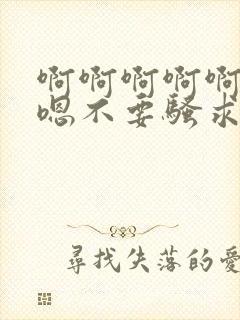 啊啊啊啊啊
嗯不要骚求
尋找失落的愛